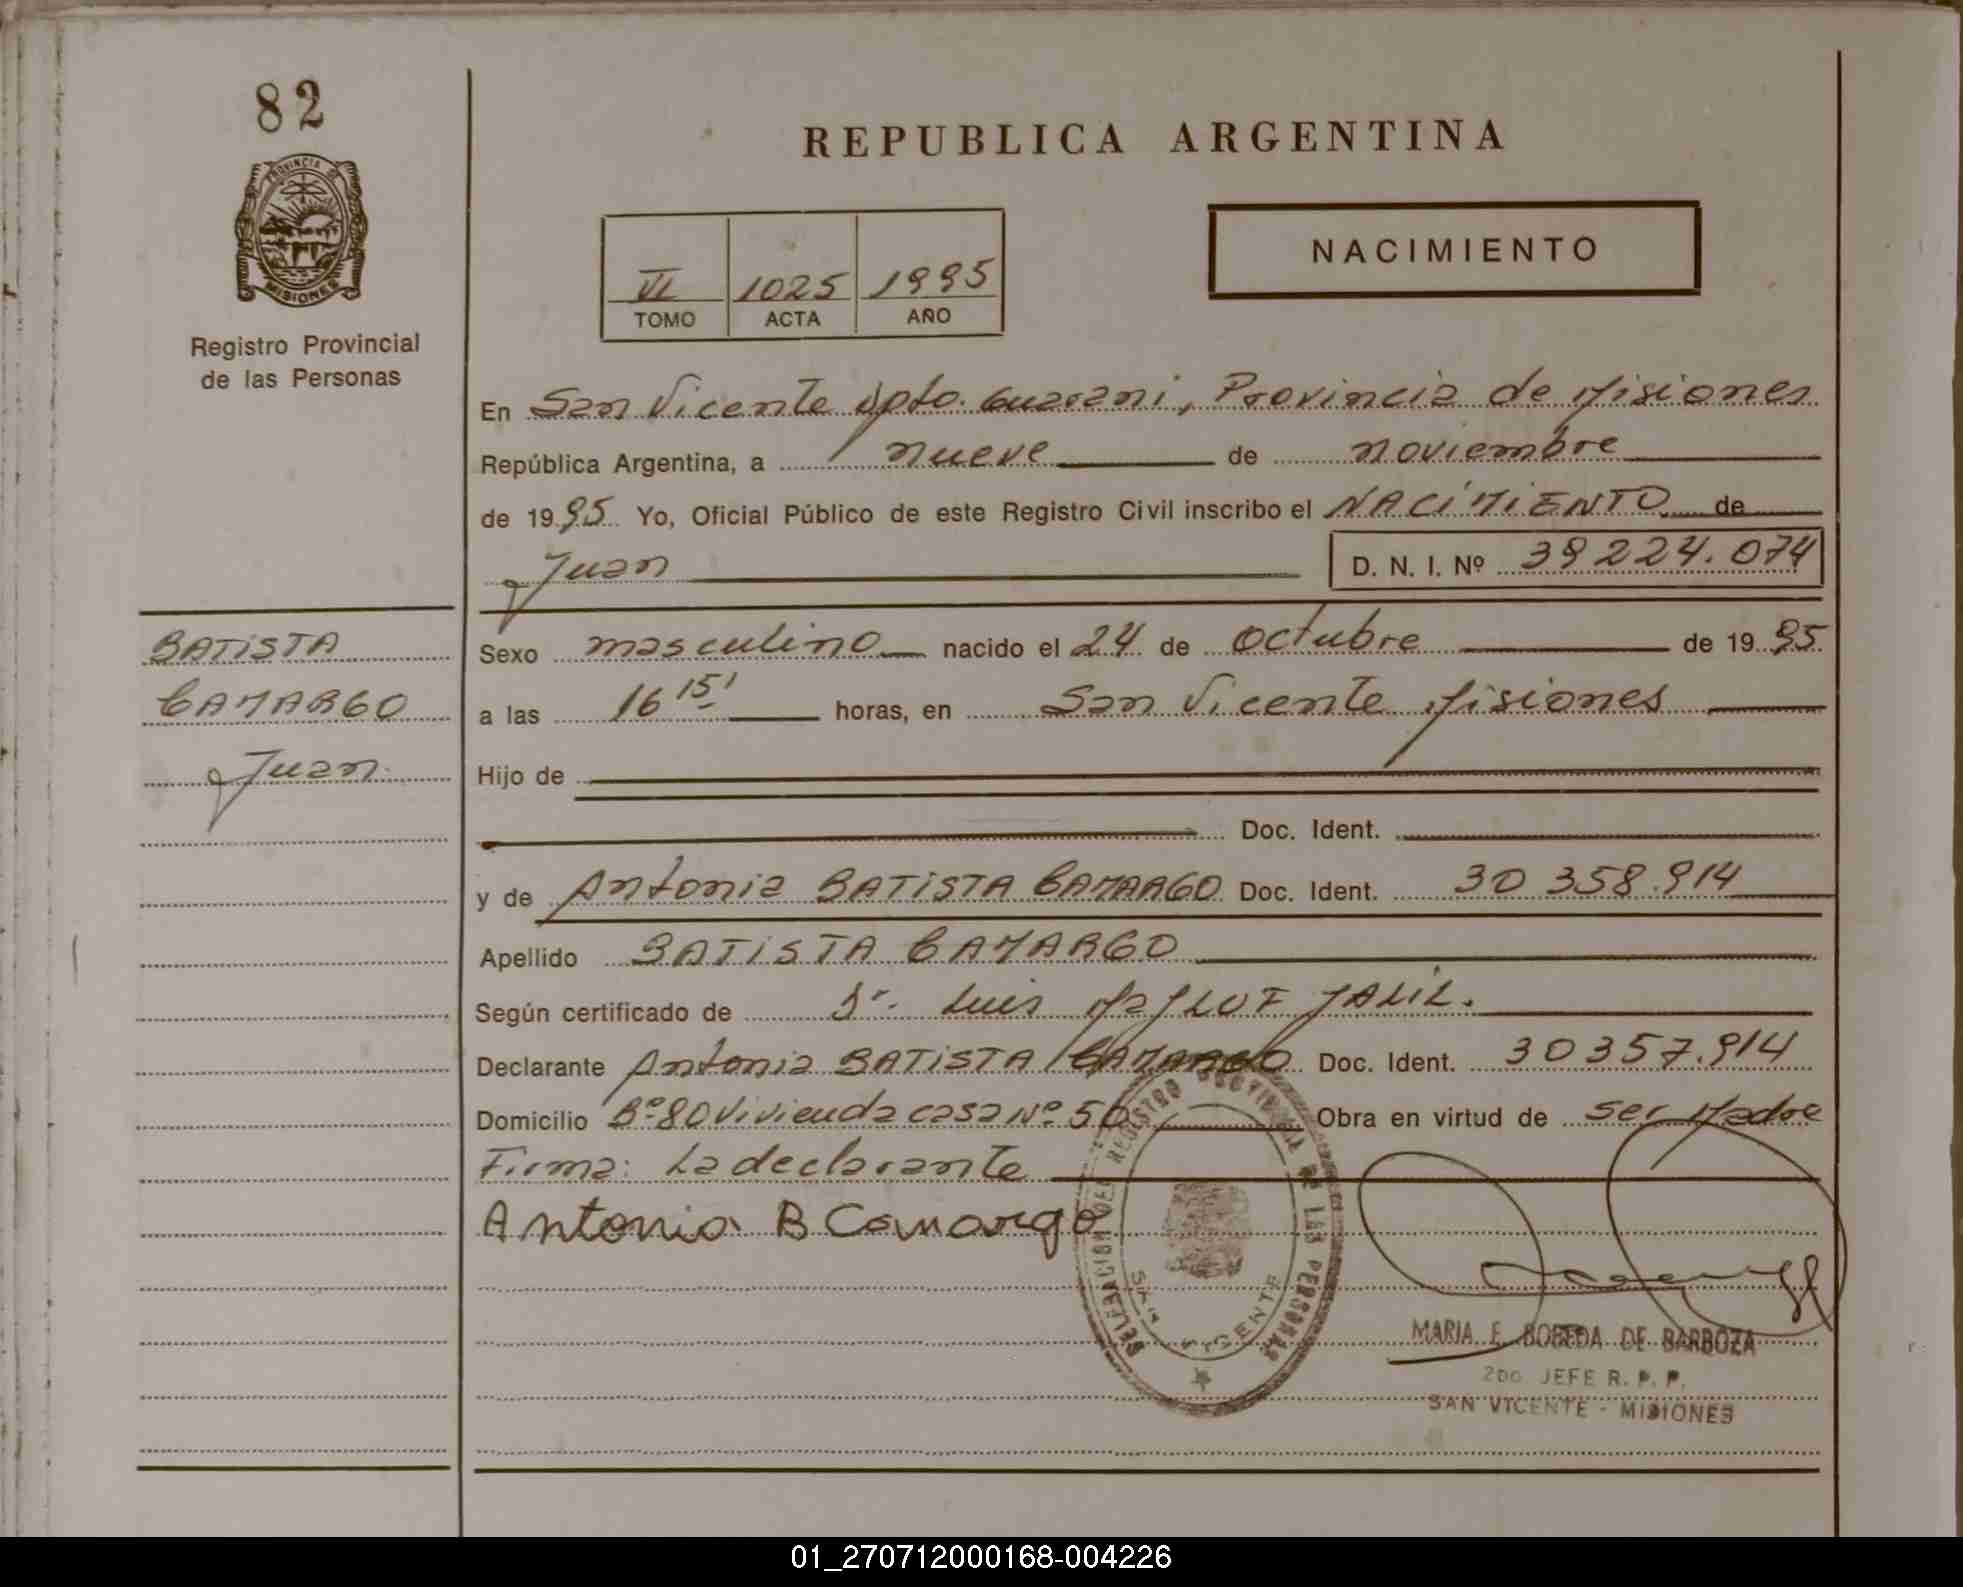 82
PROVINCIA DE
MISIONES
Registro Provincial
de las Personas
REPUBLICA ARGENTINA
NACIMIENTO
VI 1025 1995
TOMO ACTA AÑO
En San Vicente Dpto. Guarani, Provincia de Misiones
República Argentina, a nueve de noviembre
de 1995 Yo, Oficial Público de este Registro Civil inscribo el NACIMIENTO de
Juan D. N. I. Nº 39 224.074
BATISTA
CAMARGO
Juan
Sexo masculino nacido el 24 de octubre de 1995
a las 16 15' horas, en San Vicente Misiones
Hijo de
Doc. Ident.
y de Antonia BATISTA CAMARGO Doc. Ident. 30 358.914
Apellido BATISTA CAMARGO
Según certificado de Dr. Luis JALIL.
Declarante Antonia BATISTA CAMARGO Doc. Ident. 30 357.914
Domicilio Bº 80 Vivienda casa Nº 50 Obra en virtud de ser Madre
Firma: La declarante
Antonia B Camargo
DELEGACION DEL REGISTRO DE LAS PERSONAS
SAN VICENTE
MARIA E. BOBEDA DE BARBOZA
2DO JEFE R. P. P.
SAN VICENTE - MISIONES
01_270712000168-004226